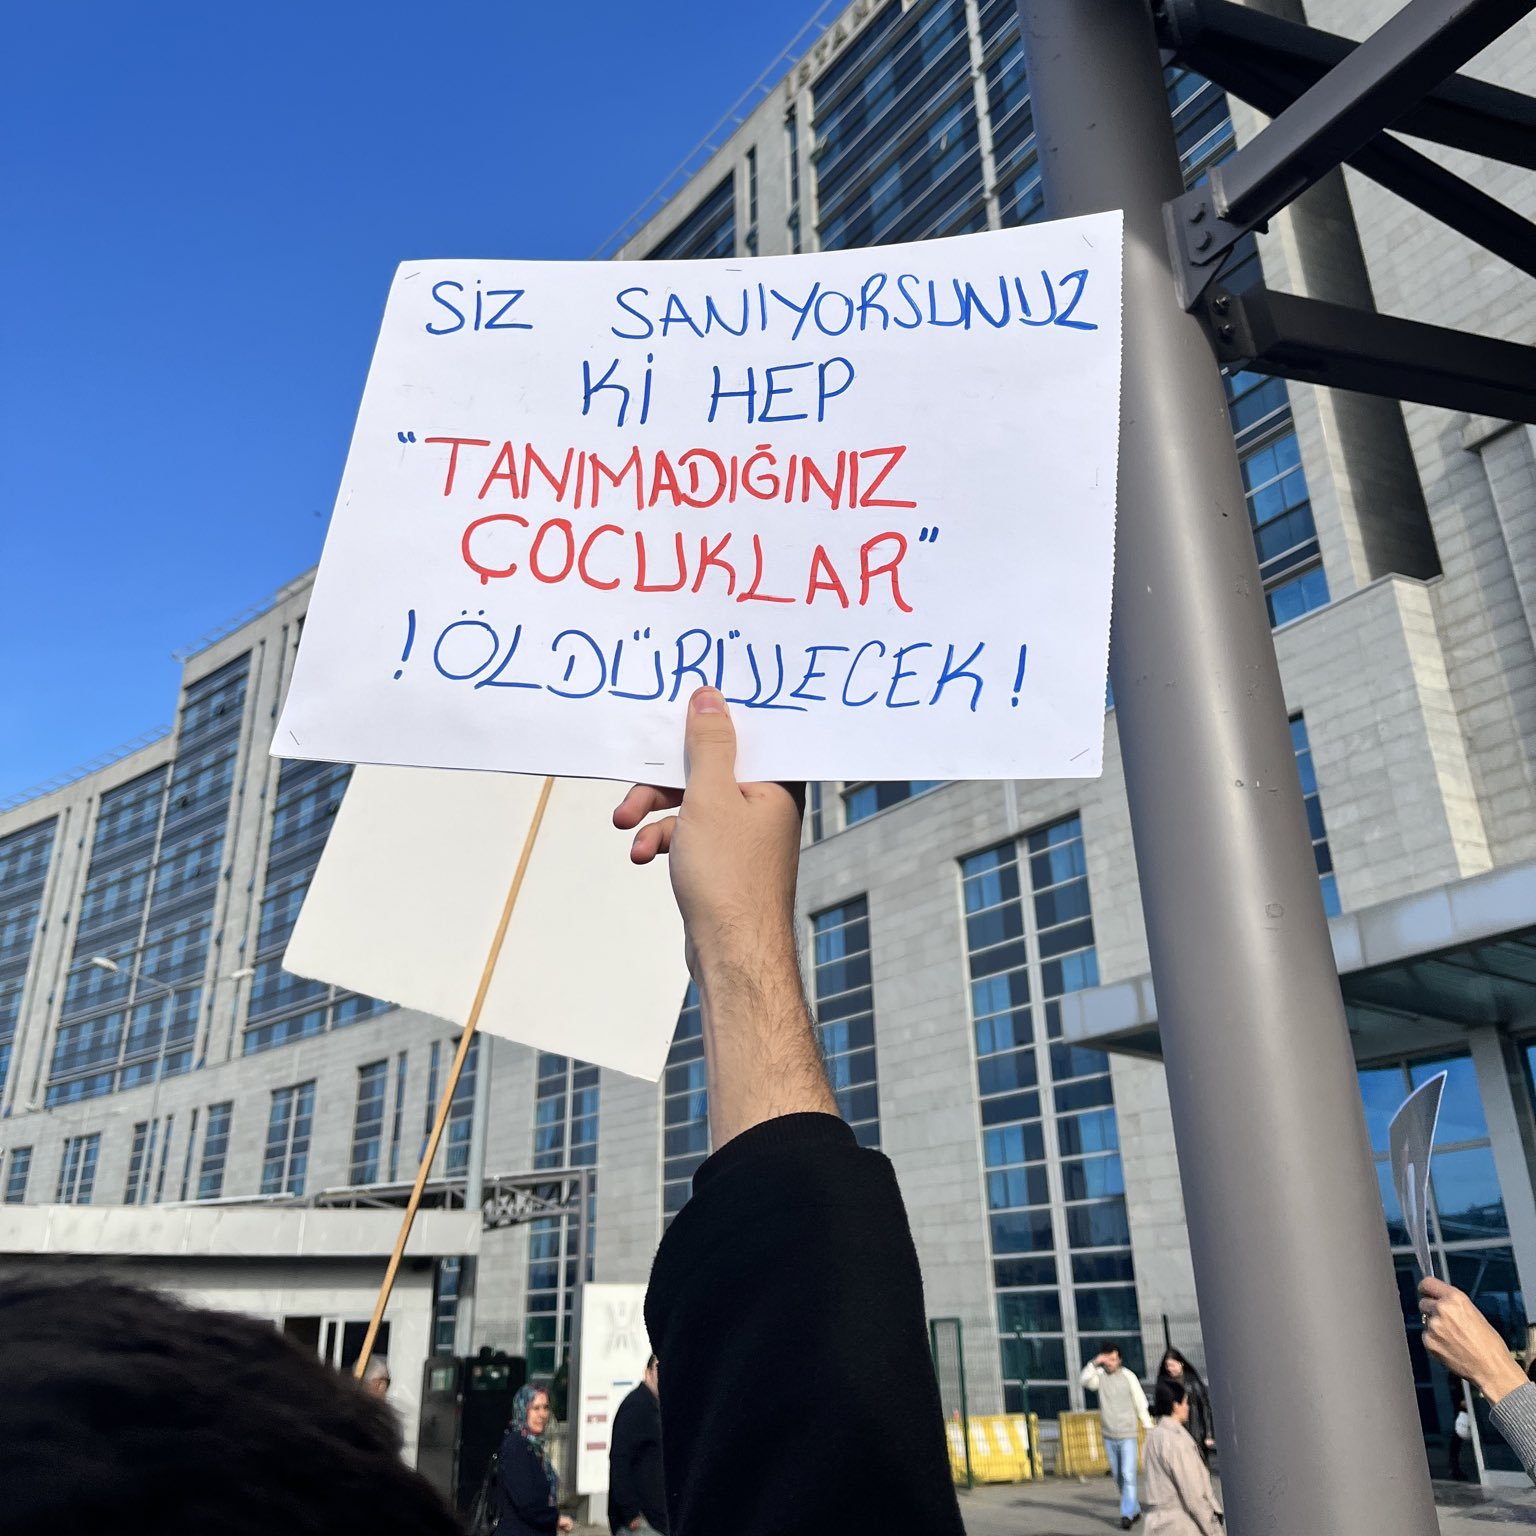 SİZ SANIYORSUNUZ
Kİ HEP
"TANIMADIĞINIZ
ÇOCUKLAR"
! ÖLDÜRÜLECEK !